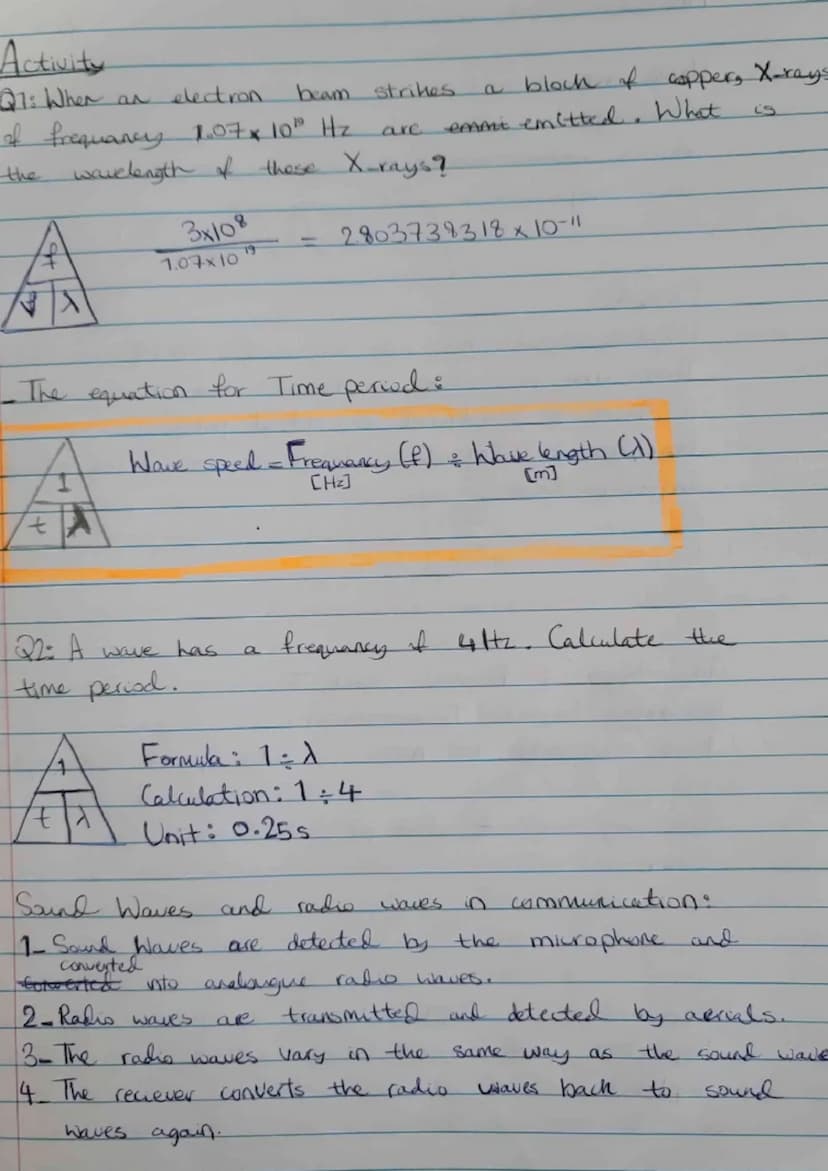 Activity
Q1: When an electron beam strikes a block of copper, X-rays
of frequancy 1.07 x 10¹⁹ Hz are emmi emitted. What is
the wavelength of these X-rays?
f
v λ
3x10⁸ / 1.07x10¹⁹ = 2803738318 x 10⁻¹¹
- The equation for Time period:
1
t λ
Wave speed = Frequancy (f) ÷ Wave length (λ)
[Hz] [m]
Q2: A wave has a frequancy of 4Hz. Calculate the
time period.
1
t λ
Formula: 1 ÷ λ
Calculation: 1 ÷ 4
Unit: 0.25s
Sound Waves and radio waves in communication:
1- Sound Waves are detected by the microphone and
converted
into analougue radio waves.
2- Radio waves are transmitted and detected by aerials.
3- The radio waves vary in the same way as the sound wave
4- The reciever converts the radio waves back to sound
waves again.